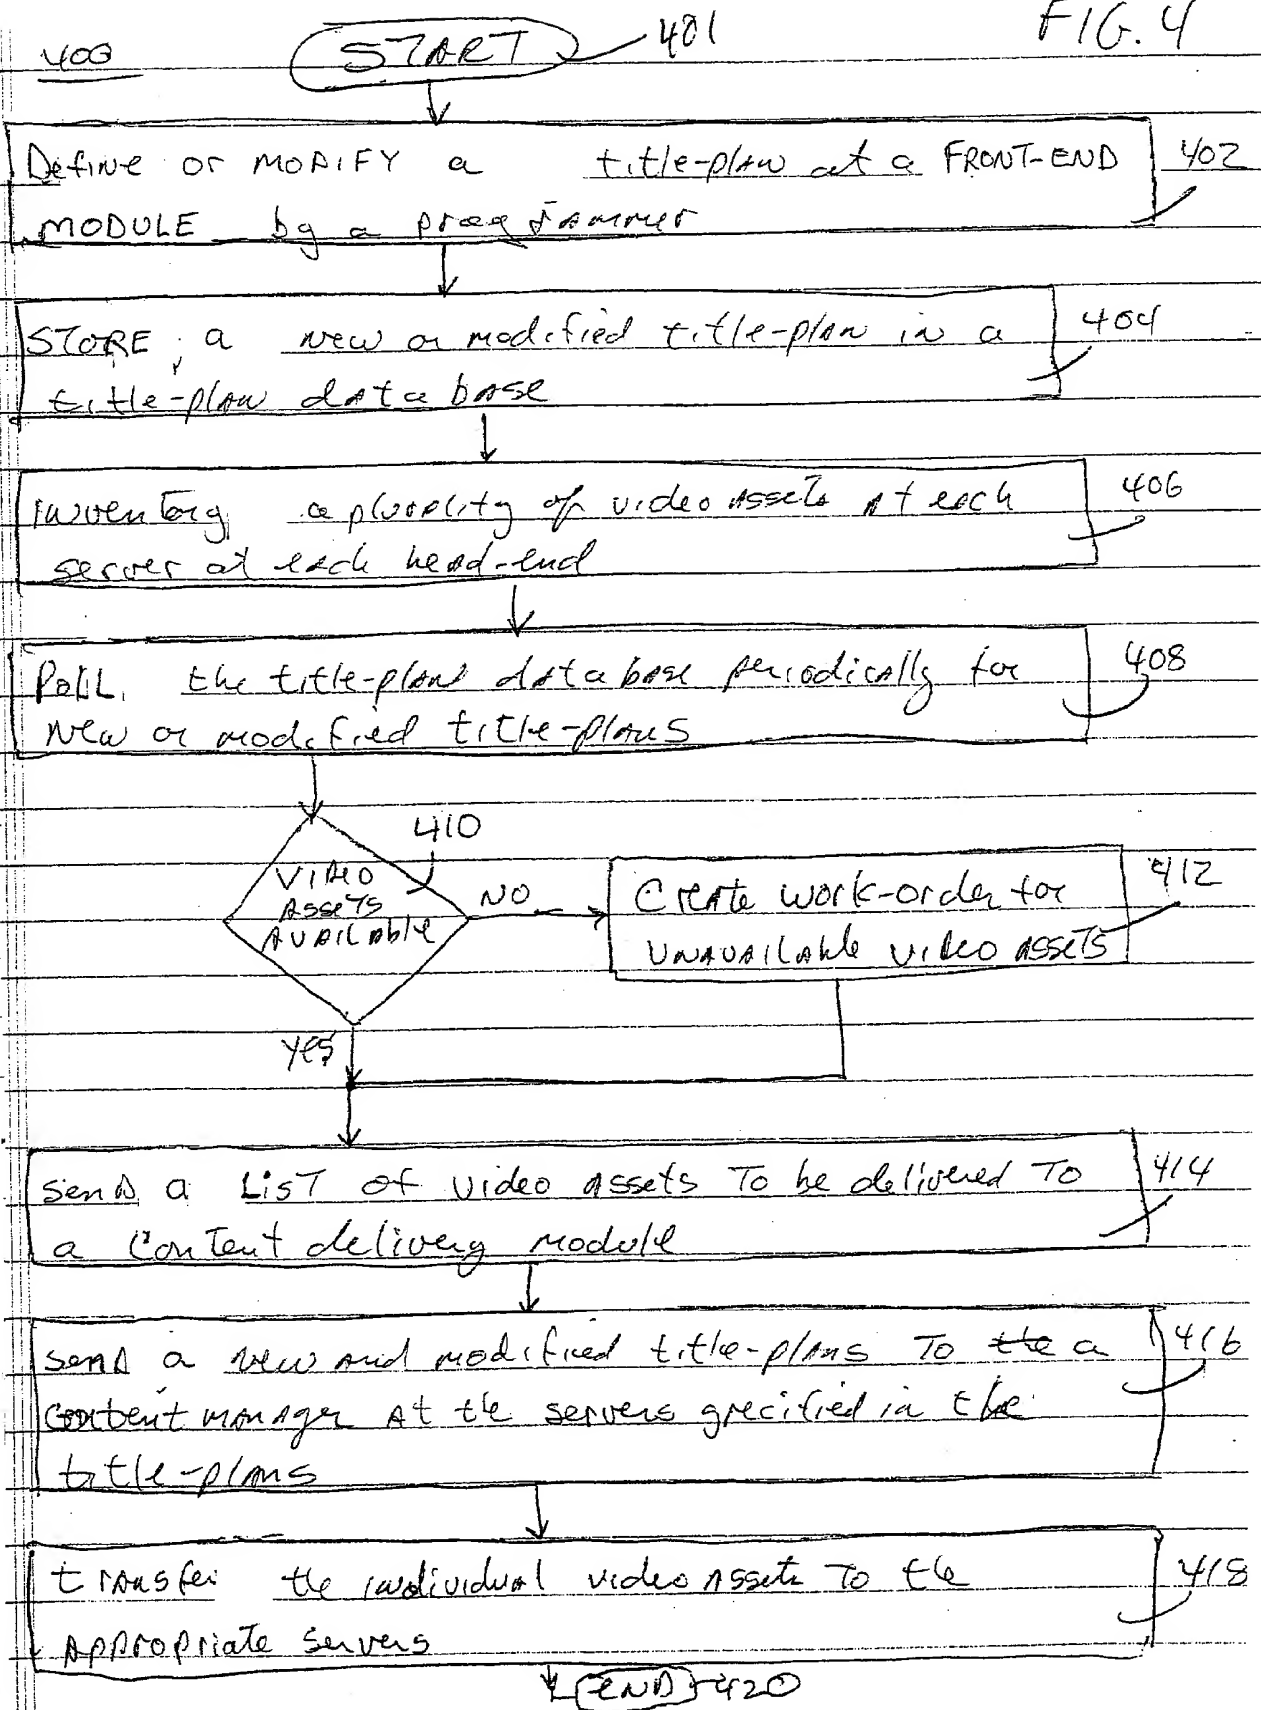 FIG. 4
400
START 401
Define or MODIFY a title-plan at a FRONT-END 402
MODULE by a programmer
STORE, a new or modified title-plan in a 404
title-plan data base
inventory a plurality of video assets at each 406
server at each head-end
Poll, the title-plan data base periodically for 408
New or modified title-plans
410
VIDEO
Assets
AVAILABLE
NO
Create work-order for 412
UNAVAILABLE video assets
YES
send a LIST of video assets To be delivered To 414
a Content delivery module
send a new and modified title-plans To the a 416
content manager At the servers specified in the
title-plans
transfer the individual video assets To the 418
Appropriate servers
END 420